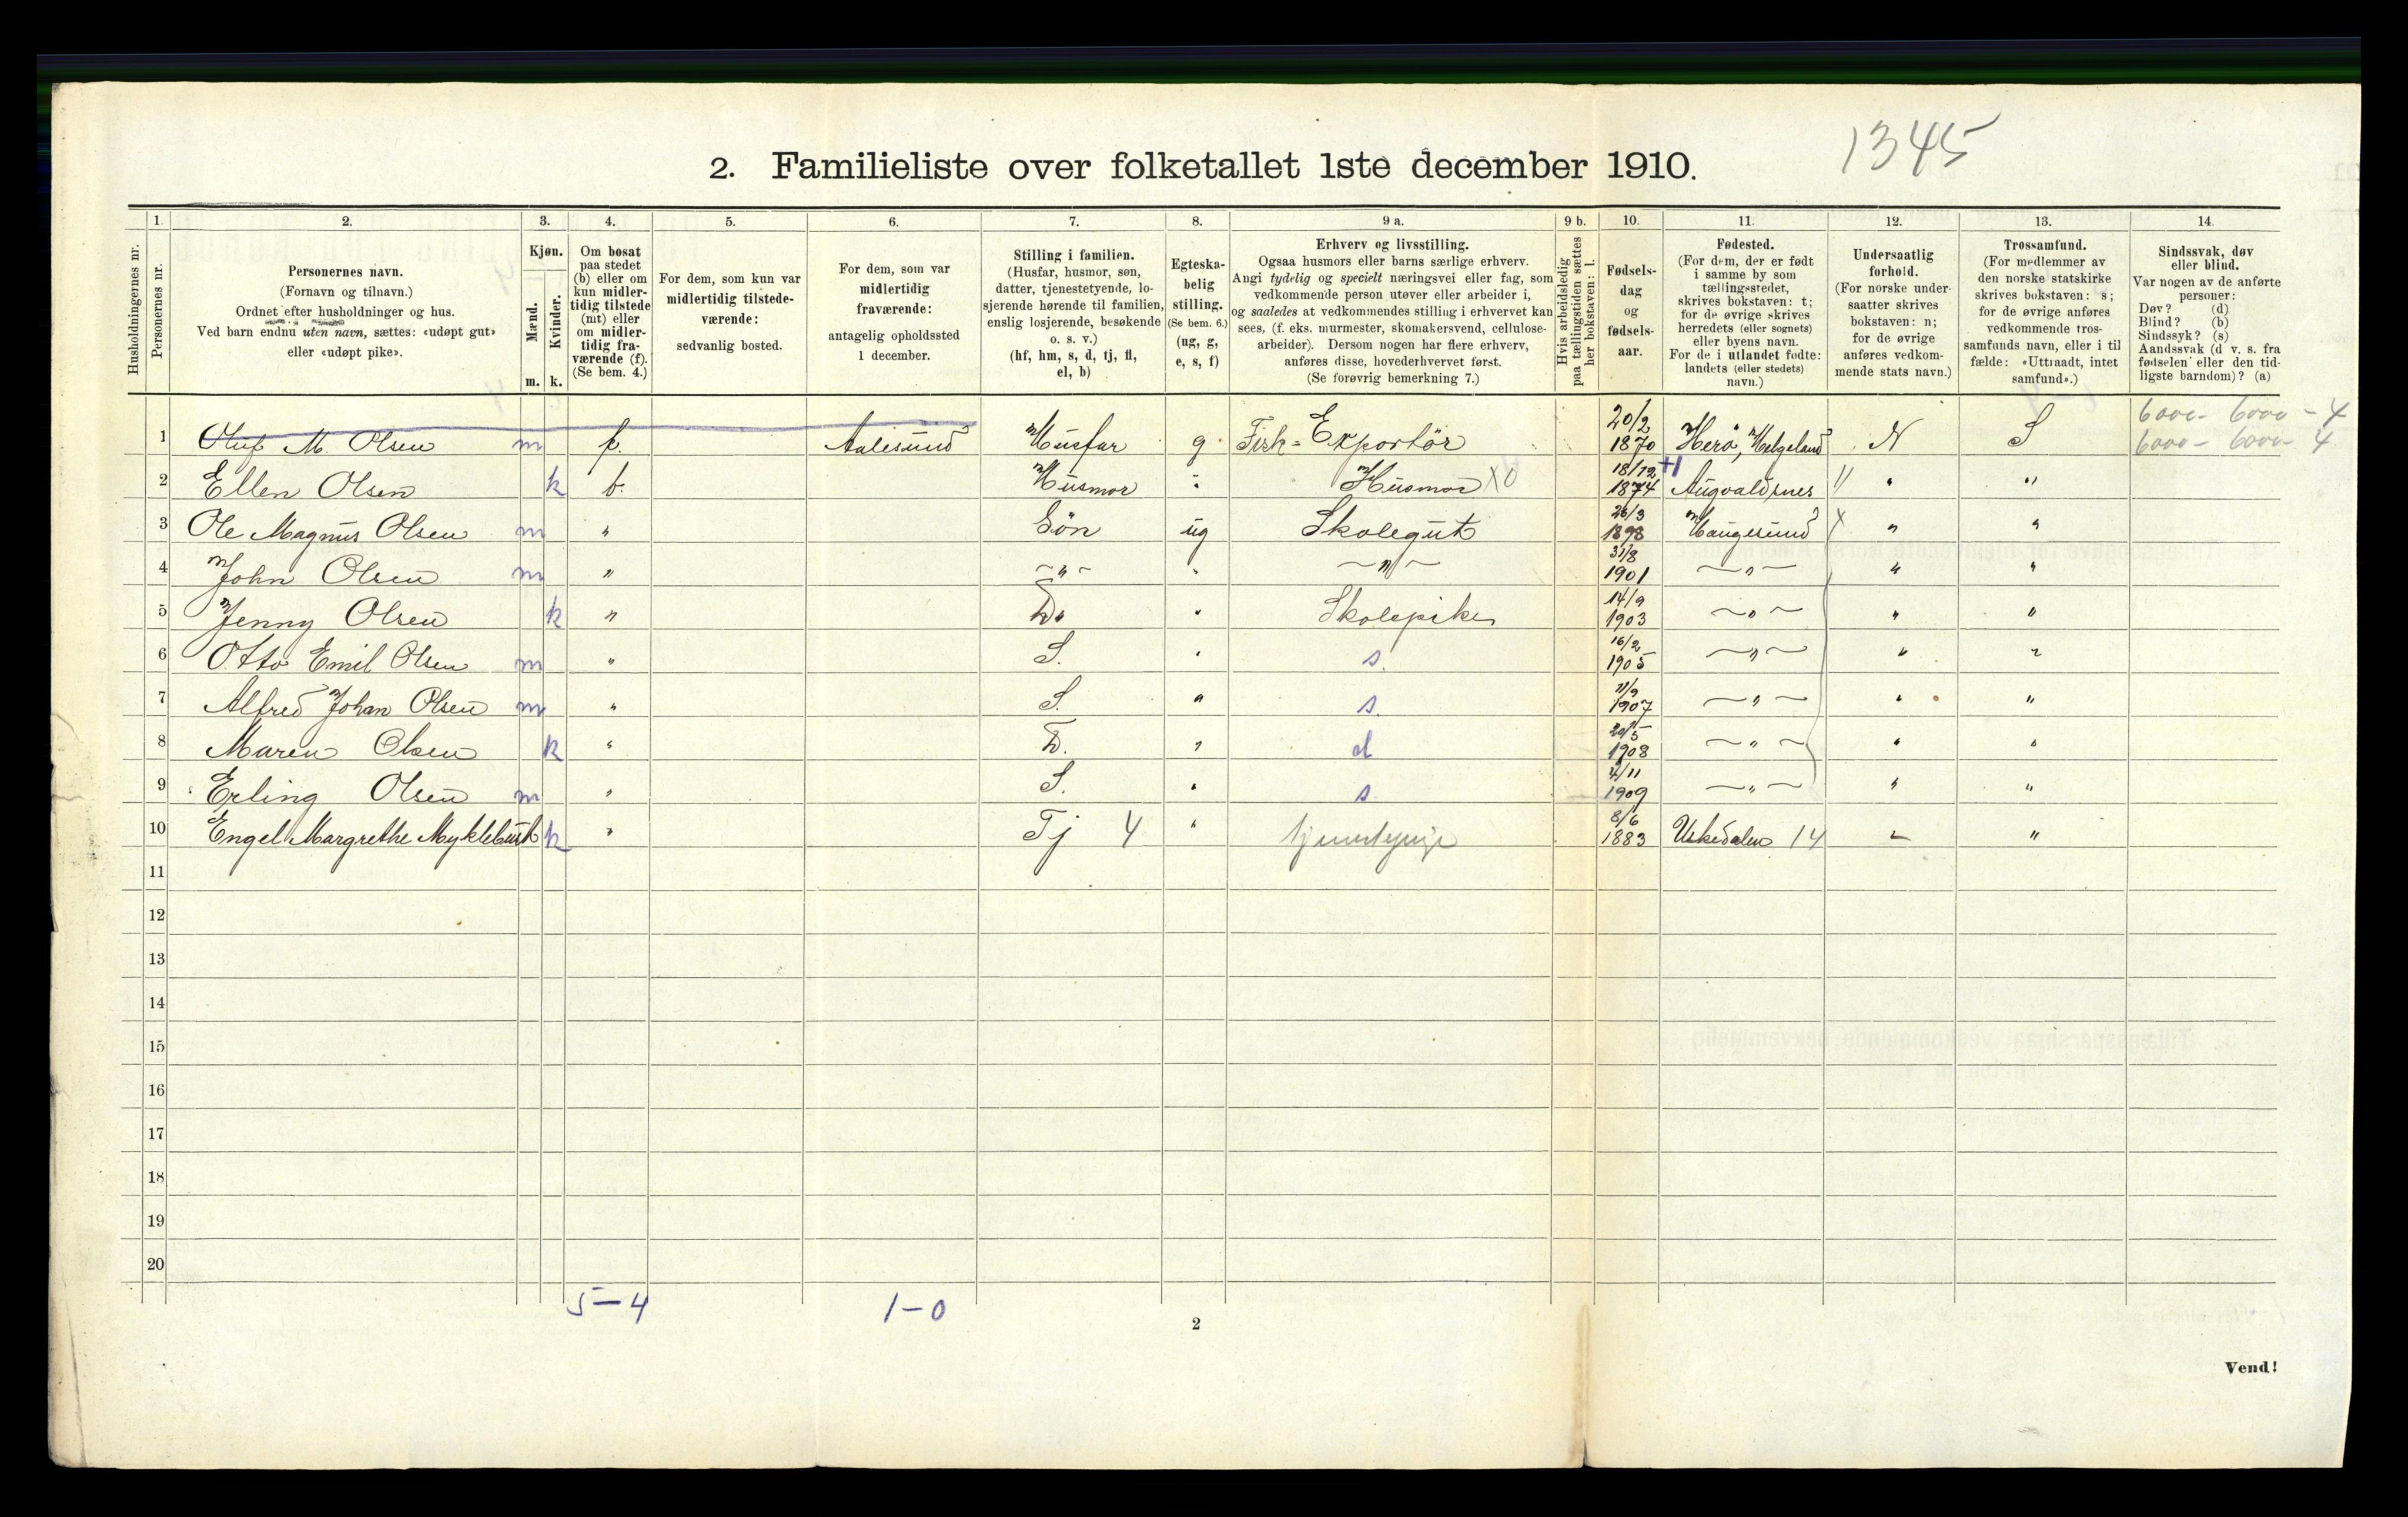 1345
2. Familieliste over folketallet 1ste december 1910.
1. 2. 3. 4. 5. 6. 7. 8. 9 a. 9 b. 10. 11. 12. 13. 14.
Husholdningernes nr.
Personernes nr.
Personernes navn.
(Fornavn og tilnavn.)
Ordnet efter husholdninger og hus.
Ved barn endnu uten navn, sættes: «udøpt gut»
eller «udøpt pike».
Kjøn.
Mænd.
Kvinder.
m. k.
Om bosat
paa stedet
(b) eller om
kun midler-
tidig tilstede
(mt) eller
om midler-
tidig fra-
værende (f).
(Se bem. 4.)
For dem, som kun var
midlertidig tilstede-
værende:
sedvanlig bosted.
For dem, som var
midlertidig
fraværende:
antagelig opholdssted
1 december.
Stilling i familien.
(Husfar, husmor, søn,
datter, tjenestetyende, lo-
sjerende hørende til familien,
enslig losjerende, besøkende
o. s. v.)
(hf, hm, s, d, tj, fl,
el, b)
Egteska-
belig
stilling.
(Se bem. 6.)
(ug, g,
e, s, f)
Erhverv og livsstilling.
Ogsaa husmors eller barns særlige erhverv.
Angi tydelig og specielt næringsvei eller fag, som
vedkommende person utøver eller arbeider i,
og saaledes at vedkommendes stilling i erhvervet kan
sees, (f. eks. murmester, skomakersvend, cellulose-
arbeider). Dersom nogen har flere erhverv,
anføres disse, hovederhvervet først.
(Se forøvrig bemerkning 7.)
Hvis arbeidsledig
paa tællingstiden sættes
her bokstaven: l.
Fødsels-
dag
og
fødsels-
aar.
Fødested.
(For dem, der er født
i samme by som
tællingsstedet,
skrives bokstaven: t;
for de øvrige skrives
herredets (eller sognets)
eller byens navn.
For de i utlandet fødte:
landets (eller stedets)
navn.)
Undersaatlig
forhold.
(For norske under-
saatter skrives
bokstaven: n;
for de øvrige
anføres vedkom-
mende stats navn.)
Trossamfund.
(For medlemmer av
den norske statskirke
skrives bokstaven: s;
for de øvrige anføres
vedkommende tros-
samfunds navn, eller i til
fælde: «Uttraadt, intet
samfund».)
Sindssvak, døv
eller blind.
Var nogen av de anførte
personer:
Døv? (d)
Blind? (b)
Sindssyk? (s)
Aandssvak (d v. s. fra
fødselen eller den tid-
ligste barndom)? (a)
6000 - 6000 - 4
1 Oluf M. Olsen m f. Aalesund Husfar g Fisk-Exportör 20/2 1870 Herö, Helgeland N S 6000 - 6000 - 4
2 Ellen Olsen k b. Husmor " Husmor X0 18/12 1874 +1 Augvaldsnes // " "
3 Ole Magnus Olsen m " Sön ug Skolegut 26/3 1898 Haugesund X " "
4 John Olsen m " -"- " -"- 31/8 1901 -"- " "
5 Jenny Olsen k " D. " Skolepike 14/9 1903 -"- " "
6 Otto Emil Olsen m " S. " s. 16/2 1905 -"- " "
7 Alfred Johan Olsen m " S. " s. 11/9 1907 -"- " "
8 Maren Olsen k " D. " d 20/5 1908 -"- " "
9 Erling Olsen m " S. " s 4/11 1909 -"- " "
10 Engel Margrethe Myklebust k " Tj 4 " tjenestepige 8/6 1883 Uskedalen 14 " "
11
12
13
14
15
16
17
18
19
20
5-4 1-0
2
Vend!